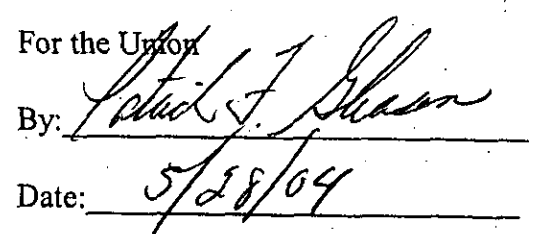 For the Union
By: Patrick F. Gleason
Date: 5/28/04